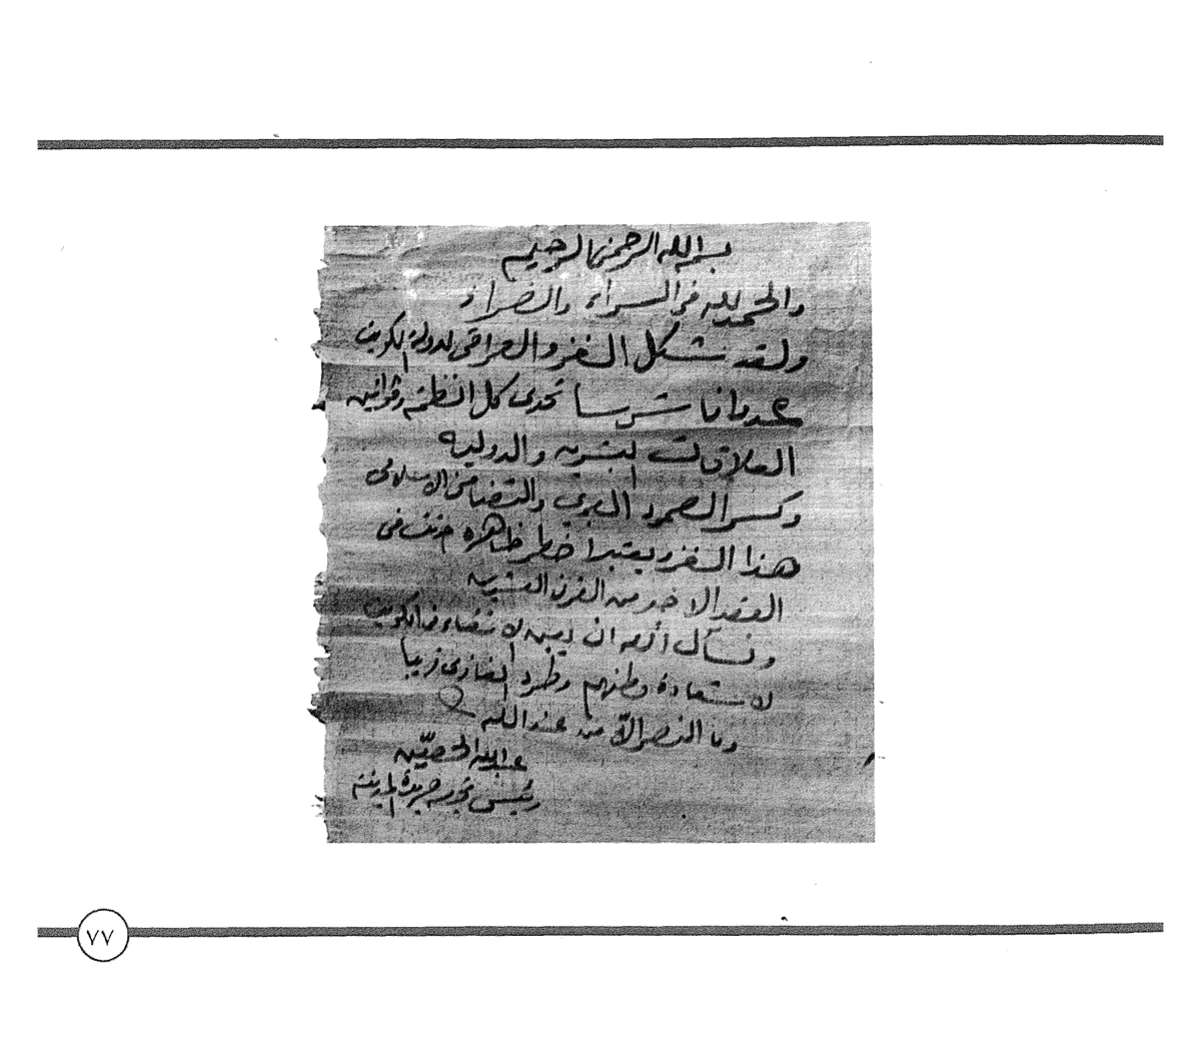 بسم الله الرحمن الرحيم
والحمد لله في السراء والضراء
ولقد شكل الغزو العراقي لدولة الكويت
عدوانا شرسا تحدى كل انظمة وقوانين
العلاقات البشريه والدوليه
وكسر الصمود العربي والتضامن الاسلامي
هذا الغزو يعتبر اخطر ظاهره حدثت في
العقد الاخير من القرن العشرين
ونسأل الله ان يعين الاشقاء في الكويت
لاستعادة وطنهم وطرد الغازي قريبا
وما النصر إلاّ من عند الله
عبدالله الحصيّن
رئيس تحرير جريدة المدينة
٧٧